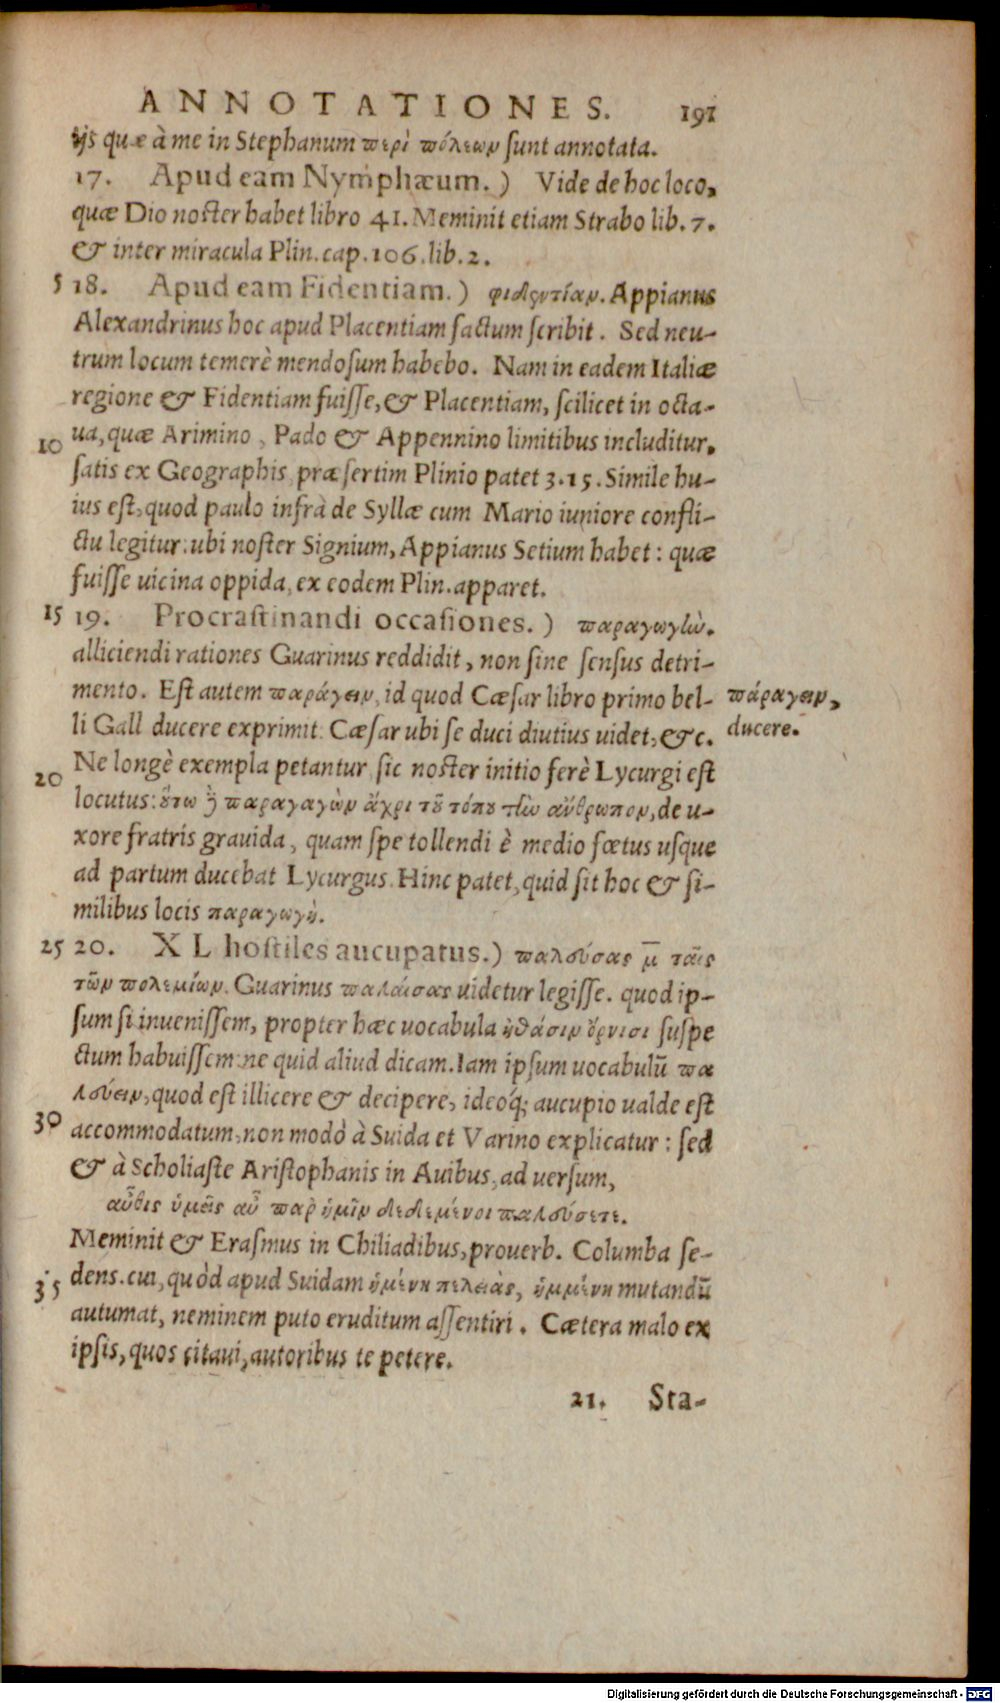 ANNOTATIONES. 191
ijs quæ à me in Stephanum περὶ πόλεων sunt annotata.
17. Apud eam Nymphæum.) Vide de hoc loco,
quæ Dio noster habet libro 41. Meminit etiam Strabo lib. 7.
& inter miracula Plin. cap. 106. lib. 2.
5 18. Apud eam Fidentiam.) φιδεντίαν. Appianus
Alexandrinus hoc apud Placentiam factum scribit. Sed neu-
trum locum temerè mendosum habebo. Nam in eadem Italiæ
regione & Fidentiam fuisse, & Placentiam, scilicet in octa-
10 ua, quæ Arimino, Pado & Appennino limitibus includitur,
satis ex Geographis, præsertim Plinio patet 3.15. Simile hu-
ius est, quod paulo infrà de Syllæ cum Mario iuniore confli-
ctu legitur: ubi noster Signium, Appianus Setium habet: quæ
fuisse uicina oppida, ex eodem Plin. apparet.
15 19. Procrastinandi occasiones.) παραγωγὼν.
alliciendi rationes Guarinus reddidit, non sine sensus detri-
mento. Est autem παράγειν, id quod Cæsar libro primo bel-
πάραγειν,
li Gall ducere exprimit: Cæsar ubi se duci diutius uidet, &c.
ducere.
Ne longè exempla petantur, sic noster initio ferè Lycurgi est
20 locutus: ὅτω ἢ παραγαγὼν ἄχρι τοῦ τόπου τὼ ἄνθρωπον, de u-
xore fratris grauida, quam spe tollendi è medio fœtus usque
ad partum ducebat Lycurgus. Hinc patet, quid sit hoc & si-
milibus locis παραγωγή.
25 20. XL hostiles aucupatus.) παλεύσας μ̅ ταῖς
τῶν πολεμίων. Guarinus παλαίσας uidetur legisse. quod ip-
sum si inuenissem, propter hæc uocabula ἠθάσιν ὄρνισι suspe
ctum habuissem: ne quid aliud dicam. Iam ipsum uocabulū πα
λεύειν, quod est illicere & decipere, ideoq́; aucupio ualde est
30 accommodatum, non modò à Suida et Varino explicatur: sed
& à Scholiaste Aristophanis in Auibus, ad uersum,
αὖθις ὑμεῖς αὖ παρ᾽ ἡμῖν δεδεμένοι παλεύσετε.
Meminit & Erasmus in Chiliadibus, prouerb. Columba se-
35 dens. cui, quòd apud Suidam ἡμένη πελειὰς, ἠμμένη mutandū
autumat, neminem puto eruditum assentiri. Cætera malo ex
ipsis, quos citaui, autoribus te petere.
21. Sta-
Digitalisierung gefördert durch die Deutsche Forschungsgemeinschaft - DFG